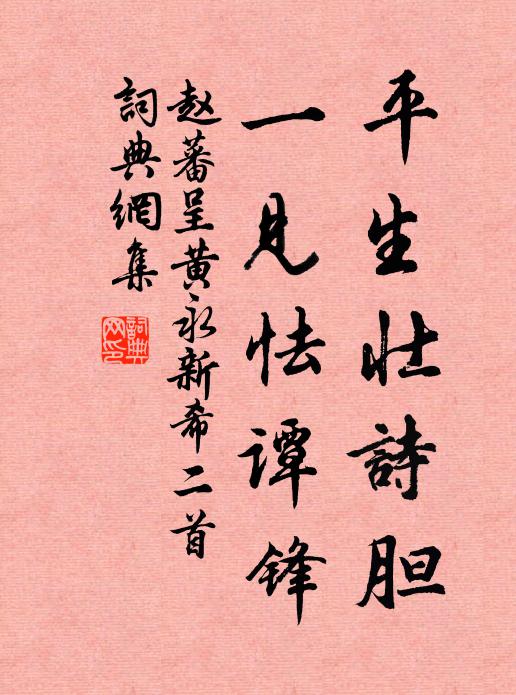 平生壮詩胆
一見怯谭锋
赵蕃呈黄永新希二首
詞典網集
詞典網印